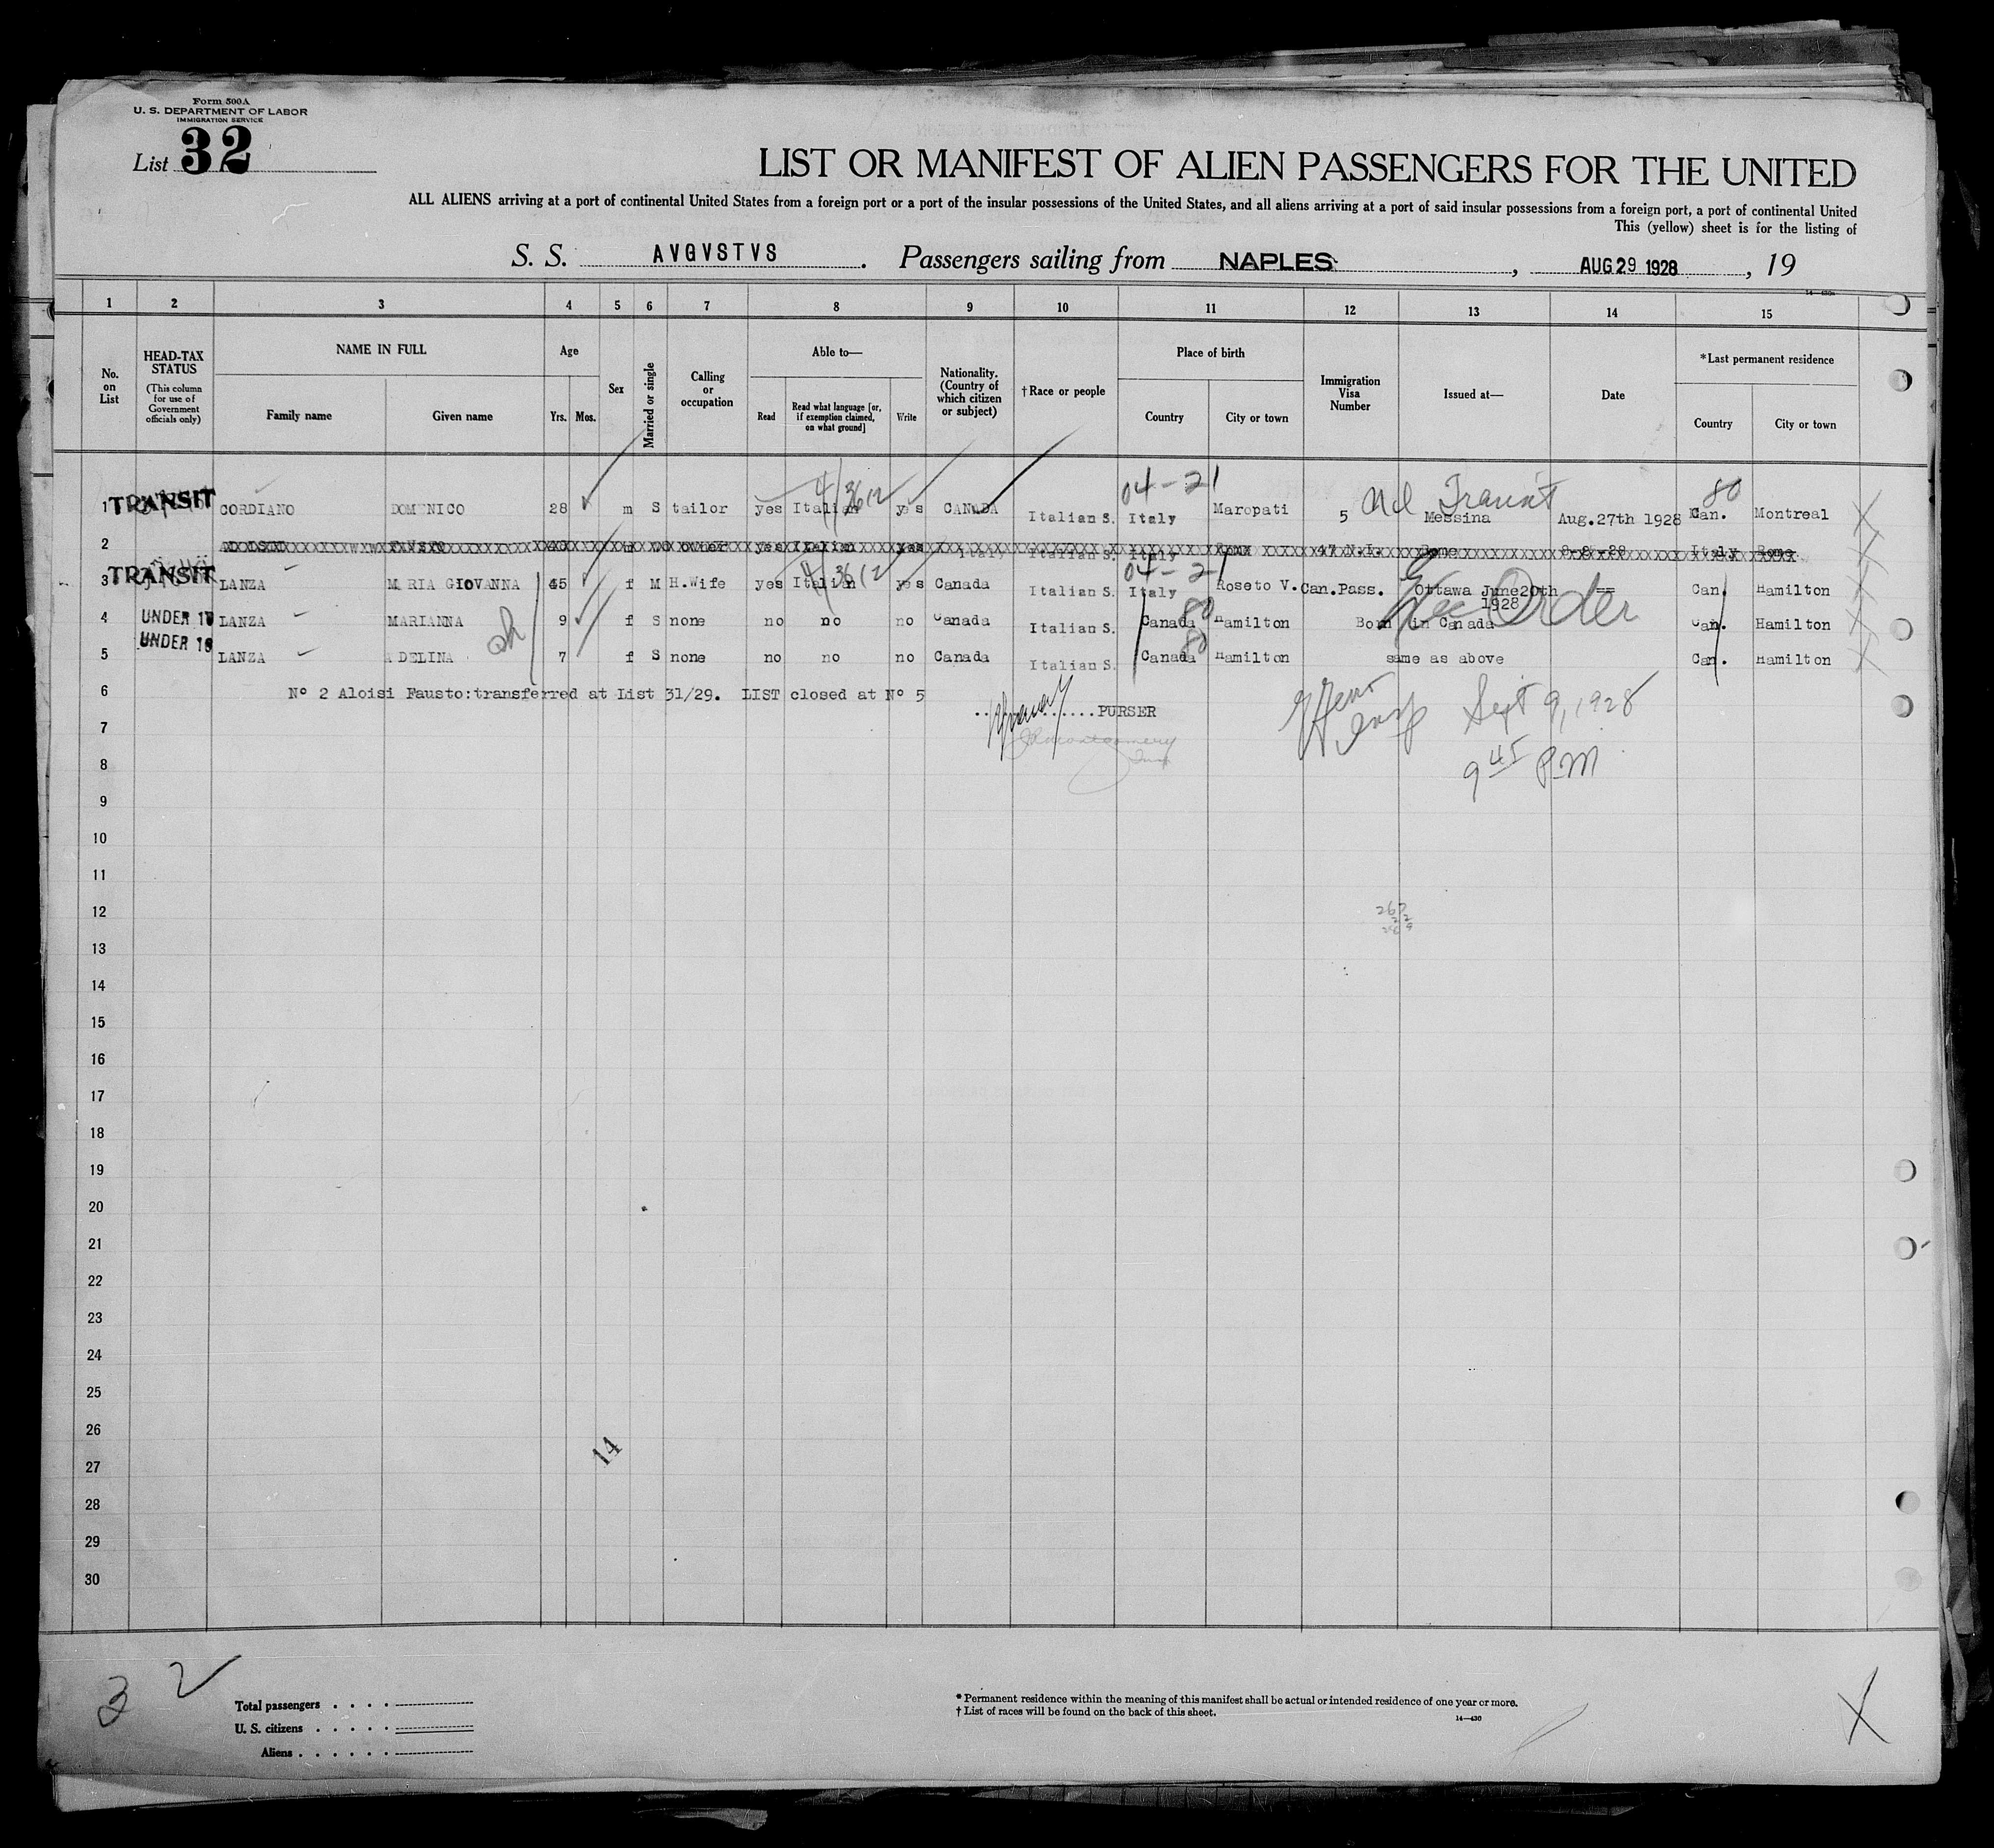 Form 500A
U. S. DEPARTMENT OF LABOR
IMMIGRATION SERVICE
List 32
LIST OR MANIFEST OF ALIEN PASSENGERS FOR THE UNITED
ALL ALIENS arriving at a port of continental United States from a foreign port or a port of the insular possessions of the United States, and all aliens arriving at a port of said insular possessions from a foreign port, a port of continental United
This (yellow) sheet is for the listing of
S. S. AVGVSTVS. Passengers sailing from NAPLES, AUG 29 1928, 19
1 2 3 4 5 6 7 8 9 10 11 12 13 14 15
No. on List
HEAD-TAX STATUS
(This column for use of Government officials only)
NAME IN FULL
Family name Given name
Age
Yrs. Mos.
Sex
Married or single
Calling or occupation
Able to—
Read Read what language [or, if exemption claimed, on what ground] Write
Nationality. (Country of which citizen or subject)
† Race or people
Place of birth
Country City or town
Immigration Visa Number
Issued at—
Date
*Last permanent residence
Country City or town
04-21 Transit 80
1 TRANSIT CORDIANO DOMENICO 28 m S tailor yes Italian yes CANADA Italian S. Italy Maropati 5 Messina Aug.27th 1928 Can. Montreal
2 Italian yes Italian S. Italy 47 N.I. Rome Italy Rome
04-21
3 TRANSIT LANZA MARIA GIOVANNA 45 f M H.Wife yes Italian yes Canada Italian S. Italy Roseto V. Can.Pass. Ottawa June20th 1928 == Can. Hamilton
Order
4 UNDER 16 LANZA MARIANNA 9 f S none no no no Canada Italian S. Canada 80 Hamilton Born in Canada Can. Hamilton
5 UNDER 16 LANZA ADELINA 7 f S none no no no Canada Italian S. Canada 80 Hamilton same as above Can. Hamilton
6 Nº 2 Aloisi Fausto:transferred at List 31/29. LIST closed at Nº 5
PURSER
Sept 9, 1928
7
9 45 P.M
8
9
10
11
12
13
14
15
16
17
18
19
20
21
22
23
24
25
26
14
27
28
29
30
32
Total passengers
U. S. citizens
Aliens
* Permanent residence within the meaning of this manifest shall be actual or intended residence of one year or more.
† List of races will be found on the back of this sheet.
14—430
X